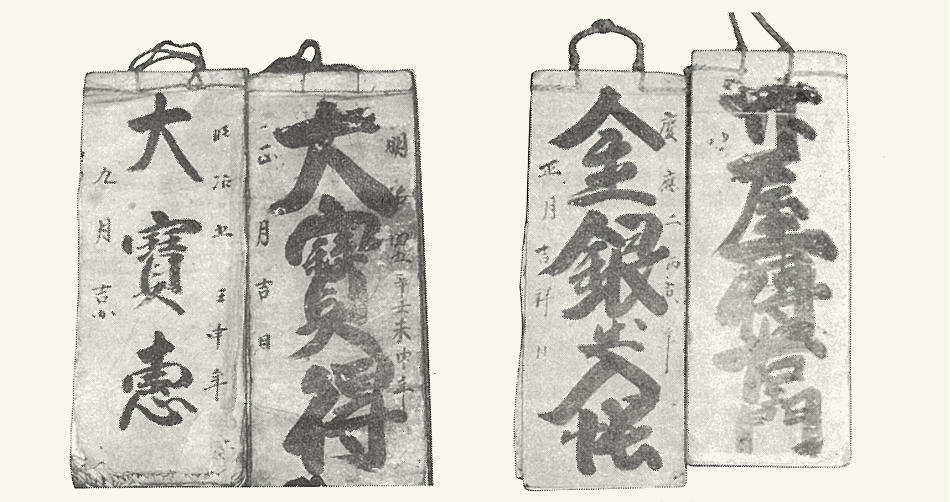 屋
慶應二丙寅年
金銀出入帳
正月吉祥日
明治四辛未年
大寶得
正月吉日
明治五壬申年
大寶恵
九月吉